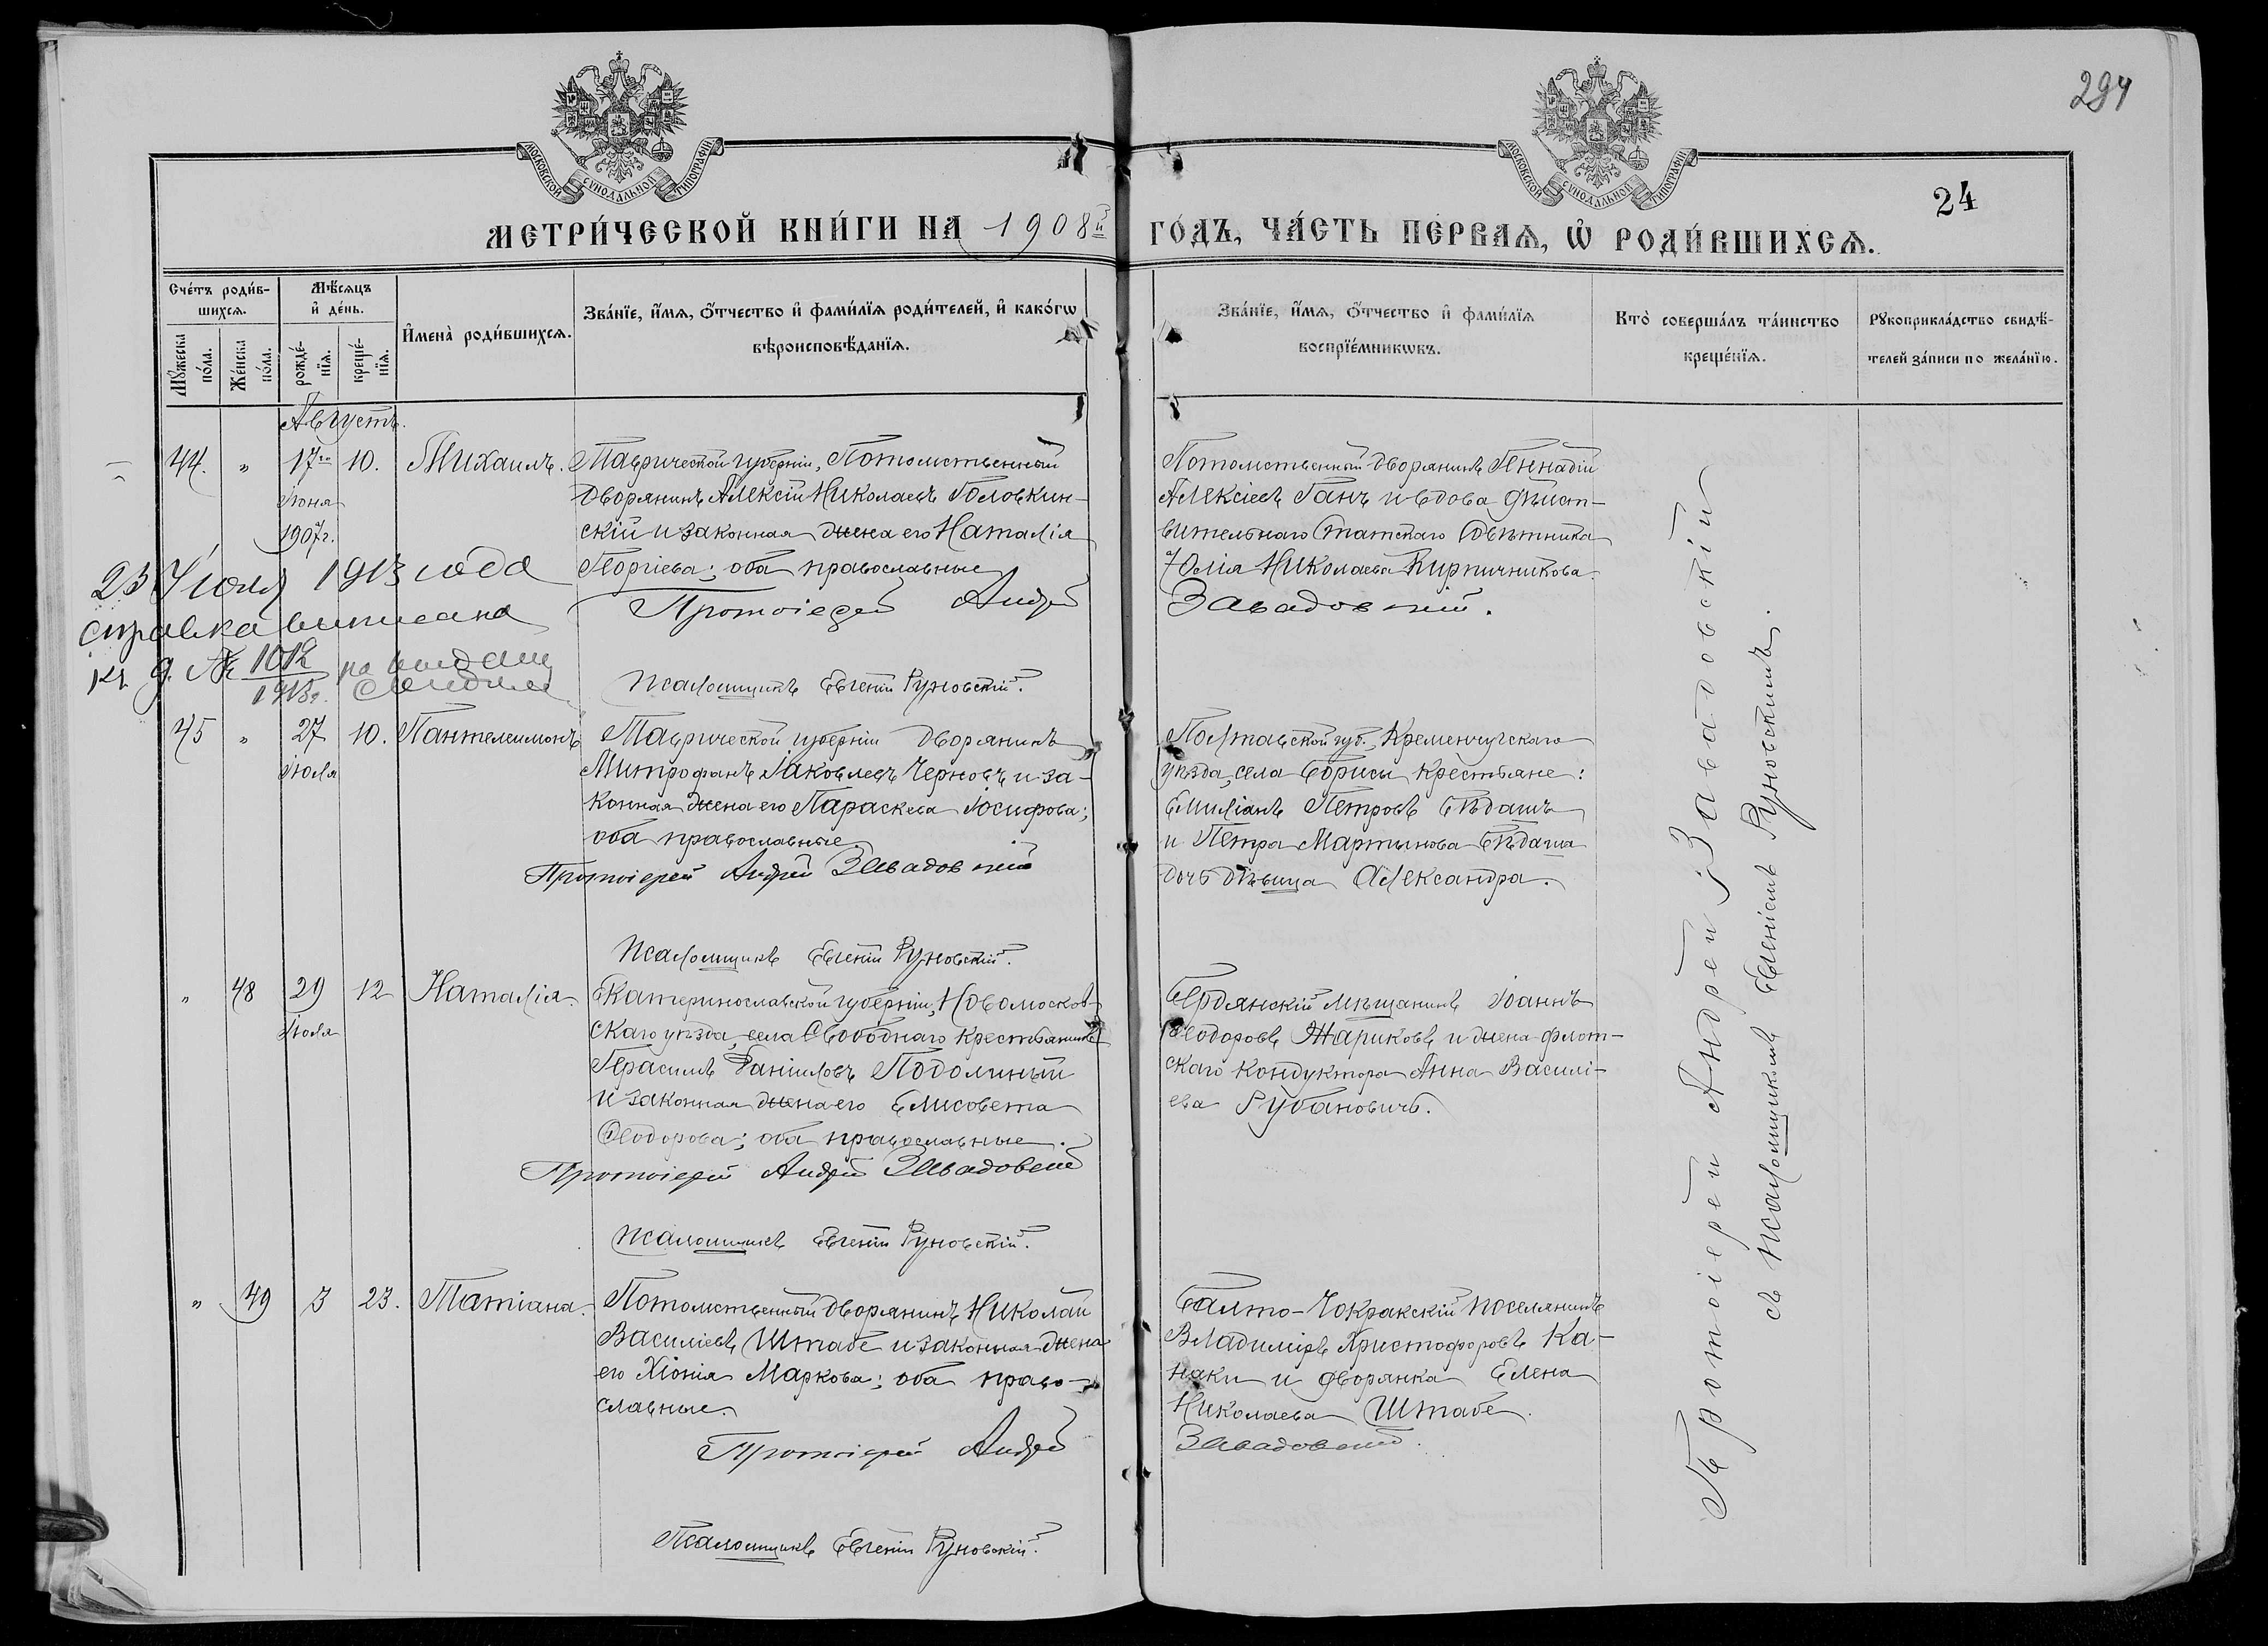 294
МОСКОВСКОЙ СѴНОДАЛЬНОЙ ТИПОГРАФІИ
МОСКОВСКОЙ СѴНОДАЛЬНОЙ ТИПОГРАФІИ
24
МЕТРИ́ЧЕСКОЙ КНИ́ГИ НА 1908й ГО́ДЪ, ЧА́СТЬ ПЕ́РВАѦ, Ѽ РОДИ́ВШИХСѦ.
Сче́тъ роди́в-
шихсѧ.
Мꙋ́жеска по́ла.
Же́нска по́ла.
Мѣ́сѧцъ
и҆ де́нь.
рожде́-
нїѧ.
креще́-
нїѧ.
И҆мена̀ роди́вшихсѧ.
Зва́нїе, и҆́мѧ, ѻ҆́тчество и҆ фами́лїѧ роди́телей, и҆ како́гѡ
вѣроисповѣ́данїѧ.
Зва́нїе, и҆́мѧ, ѻ҆́тчество и҆ фами́лїѧ
воспрїе́мникѡвъ.
Кто̀ соверша́лъ та́инство
креще́нїѧ.
Рꙋкоприкла́дство свидѣ́-
телей за́писи по жела́нїю.
Августъ.
44. " 17го 10. Михаилъ.
Іюня
1907 г.
Таврической губерніи, Потомственный
дворянинъ Алексій Николаевъ Головкин-
скій и законная жена его Наталія
Георгіева; оба православные
Протоіерей Андрей
Завадовскій.
Псаломщикъ Евгеній Руновскій.
Потомственный дворянинъ Геннадій
Алексіевъ Ганъ и вдова дѣйст-
вительнаго Статскаго Совѣтника
Юлія Николаева Кирпичникова.
23 Іюля 1913 года
справка выписана
къ д. № 1012
1913 г.
45 " 27 10. Пантелеимонъ
Іюля
Таврической губерніи дворянинъ
Митрофанъ Іаковлевъ Черновъ и за-
конная жена его Параскева Іосифова;
оба православные.
Протоіерей Андрей Завадовскій
Псаломщикъ Евгеній Руновскій.
Полтавской губ., Кременчугскаго
уѣзда, села Борисы крестьяне:
Емиліанъ Петровъ Бѣдашъ
и Петра Мартынова Бѣдаша
дочь дѣвица Александра.
" 48 29 12 Наталія.
Іюля
Екатеринославской губерніи, Новомосков-
скаго уѣзда, села Свободнаго крестьянинъ
Герасимъ Даніиловъ Подолиный
и законная жена его Елисовета
Ѳеодорова; оба православные.
Протоіерей Андрей Завадовскій
Псаломщикъ Евгеній Руновскій.
Бердянскій мѣщанинъ Іоаннъ
Ѳеодоровъ Жариковъ и жена флот-
скаго кондуктора Анна Василі-
ева Рубановичъ.
" 49 3 23. Татіана.
Потомственный дворянинъ Николай
Василіевъ Штабе и законная жена
его Хіонія Маркова; оба право-
славные.
Протоіерей Андрей
Завадовскій.
Псаломщикъ Евгеній Руновскій.
Балто-Чокракскій поселянинъ
Владиміръ Христофоровъ Ка-
наки и дворянка Елена
Николаева Штабе.
Протоіерей Андрей Завадовскій
съ Псаломщикомъ Евгеніемъ Руновскимъ.